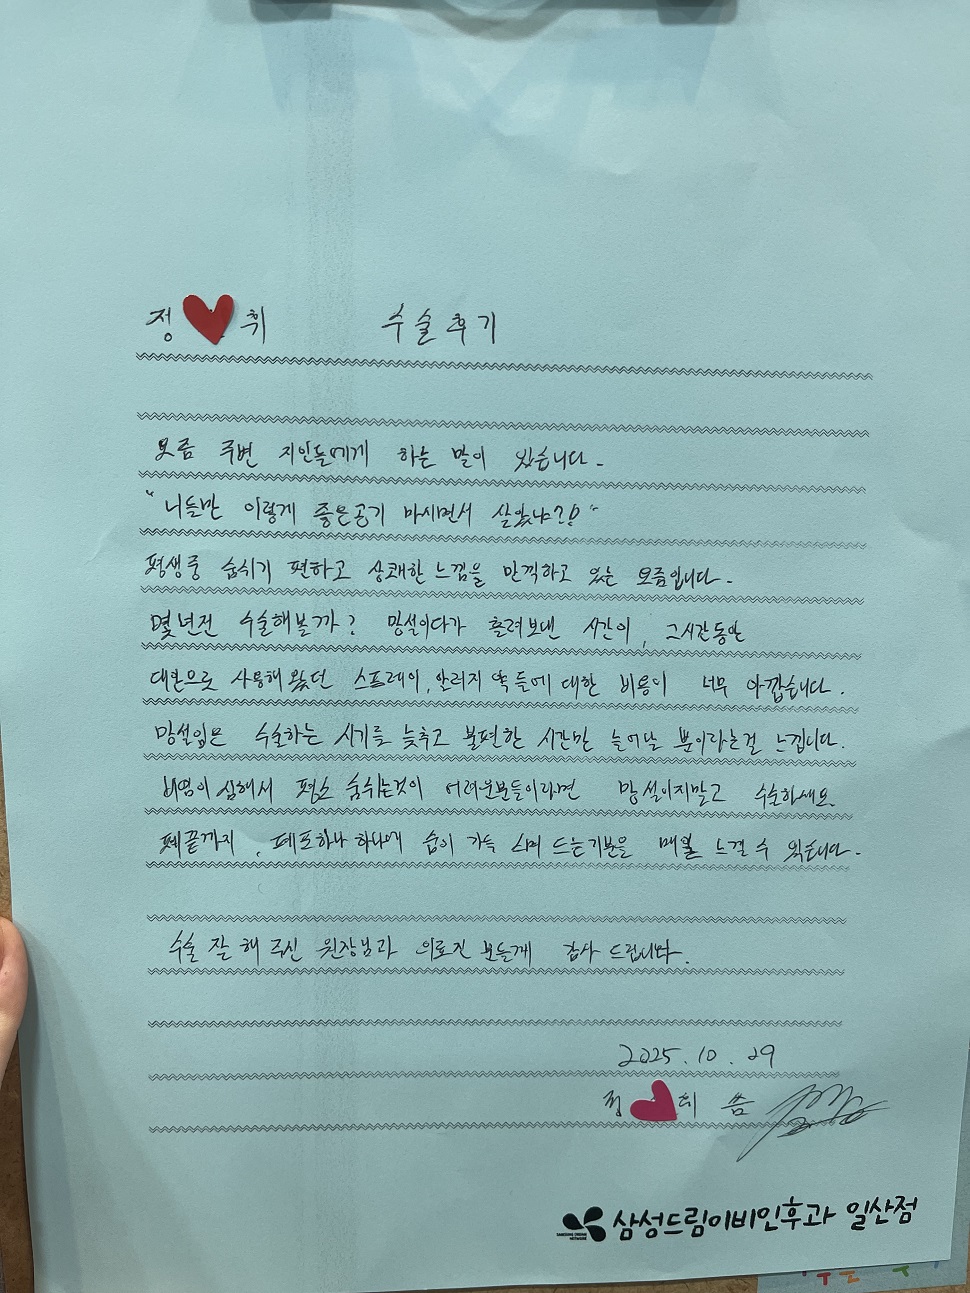 정 휘 수술후기
요즘 주변 지인들에게 하는 말이 있습니다.
"니들만 이렇게 좋은공기 마시면서 살았냐?!"
평생중 숨쉬기 편하고 상쾌한 느낌을 만끽하고 있는 요즘입니다.
몇년전 수술해볼까? 망설이다가 흘려보낸 시간이, 그시간동안
대안으로 사용해왔던 스프레이, 알러지약 들에 대한 비용이 너무 아깝습니다.
망설임은 수술하는 시기를 늦추고 불편한 시간만 늘어날 뿐이라는걸 느낍니다.
비염이 심해서 평소 숨쉬는것이 어려운분들이라면 망설이지말고 수술하세요.
폐끝까지, 폐포하나 하나에 숨이 가득 스며 드는기분을 매일 느낄 수 있습니다.
수술 잘 해 주신 원장님과 의료진 분들께 감사 드립니다.
2025.10.29
정 휘 씀
삼성드림이비인후과 일산점
SAMSUNG DREAM NETWORK